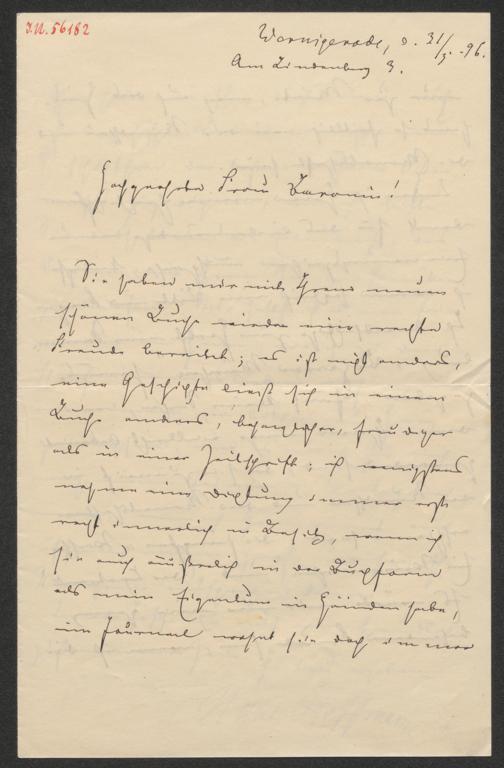 J.N. 56182
Wernigerode, d. 31/3. 96.
Am Lindenberg 3.
Hochgeehrte Frau Baronin!
Sie haben mir mit Ihrem neuen
schönen Buche wieder eine rechte
Freude bereitet; es ist nicht anders,
eine Geschichte liest sich in einem
Buche anders, behaglicher, freudiger
als in einer Zeitschrift; ich wenigstens
nehme eine Dichtung immer erst
recht innerlich in Besitz, wenn ich
sie auch äußerlich in der Buchform
als mein Eigentum in Händen habe,
im Journal wohnt sie doch immer